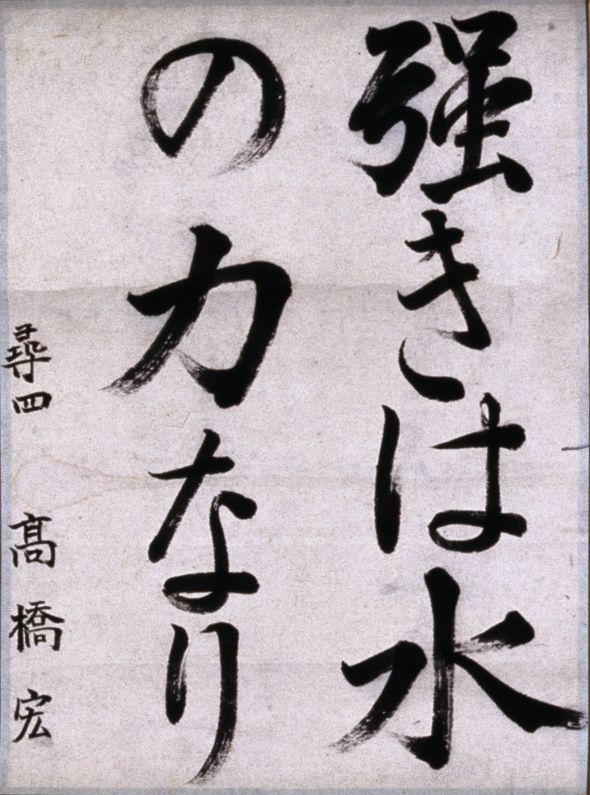 強きは水
の力なり
尋四 髙橋宏